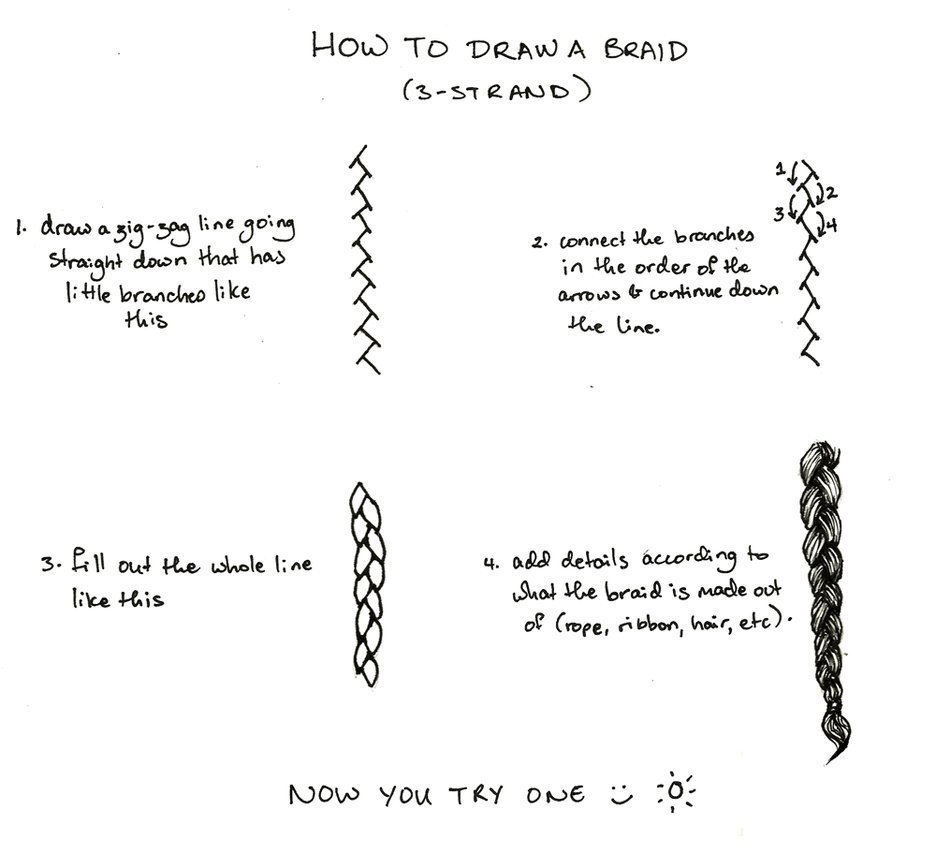 HOW TO DRAW A BRAID
(3-STRAND)
1. draw a zig-zag line going
straight down that has
little branches like
this
1
2
3
4
2. connect the branches
in the order of the
arrows & continue down
the line.
3. fill out the whole line
like this
4. add details according to
what the braid is made out
of (rope, ribbon, hair, etc).
NOW YOU TRY ONE